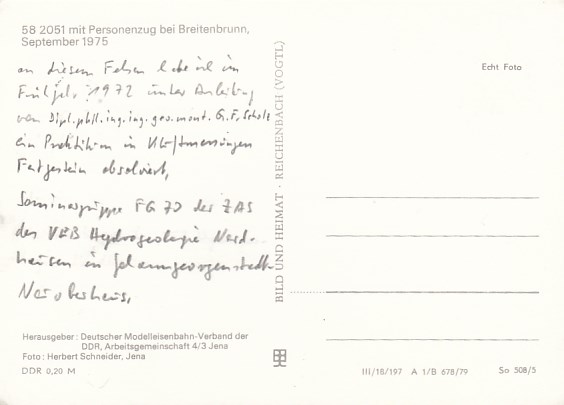 58 2051 mit Personenzug bei Breitenbrunn,
September 1975
an diesem Felsen habe ich im
Frühj. 1972 unter Anleitung
von Dipl.phil.ing.ing.geo.mont. G.F. Scholz
ein Praktikum in Kluftmessungen
Festgestein absolviert,
Seminargruppe FG 70 der ZAS
des VEB Hydrogeologie Nord-
hausen in Johanngeorgenstadt-
Herausgeber: Deutscher Modelleisenbahn-Verband der
DDR, Arbeitsgemeinschaft 4/3 Jena
Foto: Herbert Schneider, Jena
DDR 0,20 M
BILD UND HEIMAT · REICHENBACH (VOGTL)
Echt Foto
III/18/197 A 1/B 678/79 So 508/5